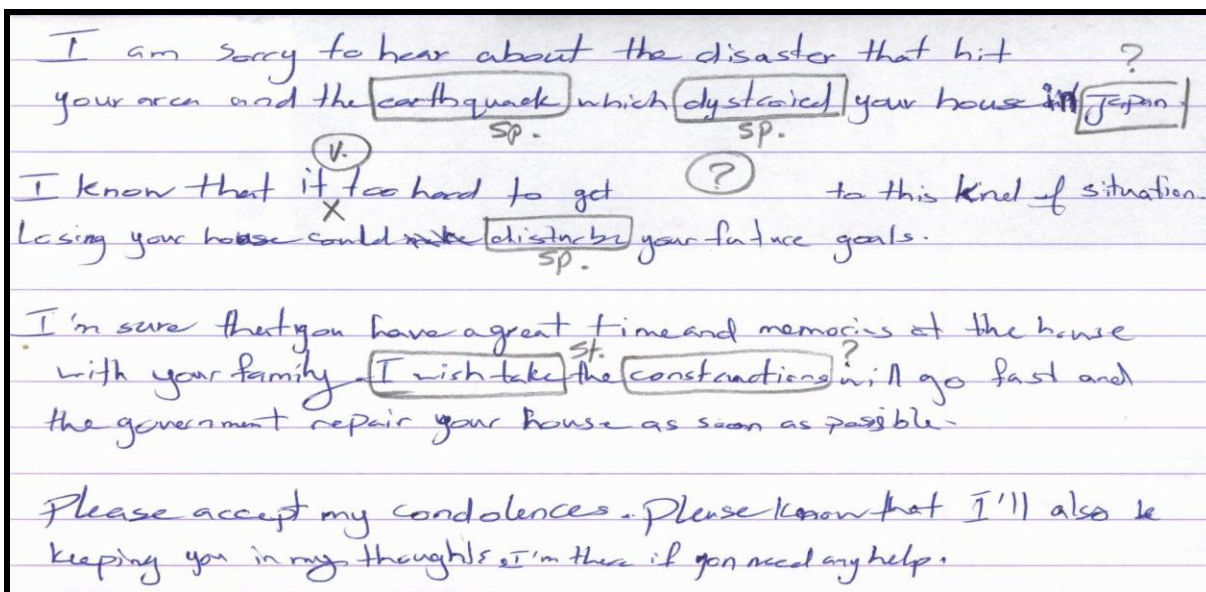 ?
I am sorry to hear about the disaster that hit
your area and the earthquack which dystroied your house in Japan.
sp. sp.
V. ?
I know that it too hard to get to this kind of situation.
X
Losing your house could make disturbe your future goals.
sp.
I'm sure that you have a great time and memories at the house
st. ?
with your family. I wish take the constructions will go fast and
the government repair your house as soon as possible.
Please accept my condolences. Please know that I'll also be
keeping you in my thoughts. I'm there if you need any help.